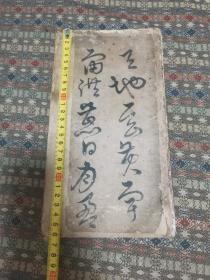 天地玄黃宇
宙洪荒日月盈